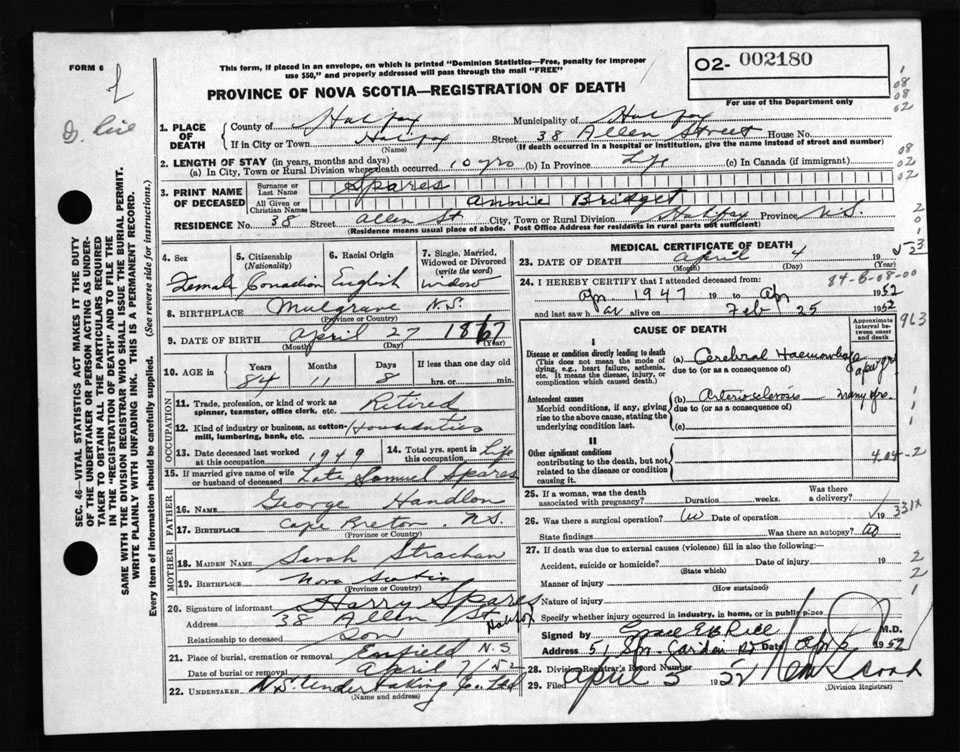 FORM 6
This form, if placed in an envelope, on which is printed "Dominion Statistics—Free, penalty for improper
use $50," and properly addressed will pass through the mail "FREE"
O2- 002180
For use of the Department only
PROVINCE OF NOVA SCOTIA—REGISTRATION OF DEATH
1. PLACE OF DEATH
County of Halifax Municipality of Halifax
If in City or Town Halifax Street 38 Allen Street House No.
(Name) (If death occurred in a hospital or institution, give name instead of street and number)
2. LENGTH OF STAY (in years, months and days)
(a) In City, Town or Rural Division where death occurred 10 yrs (b) In Province Life (c) In Canada (if immigrant)
3. PRINT NAME OF DECEASED
Surname or Last Name Spares
All Given or Christian Names Annie Bridget
RESIDENCE No. 38 Street Allen St City, Town or Rural Division Halifax Province N.S.
(Residence means usual place of abode. Post Office Address for residents in rural parts not sufficient)
4. Sex Female
5. Citizenship (Nationality) Canadian
6. Racial Origin English
7. Single, Married, Widowed or Divorced (write the word) widow
8. BIRTHPLACE Mulgrave N.S.
(Province or Country)
9. DATE OF BIRTH April 27 1867
(Month) (Day) (Year)
10. AGE in Years 84 Months 11 Days 8 If less than one day old hrs. or min.
OCCUPATION
11. Trade, profession, or kind of work as spinner, teamster, office clerk, etc. Retired
12. Kind of industry or business, as cotton-mill, lumbering, bank, etc.
13. Date deceased last worked at this occupation 1949
14. Total yrs. spent in this occupation Life
15. If married give name of wife or husband of deceased Late Samuel Spares
FATHER
16. NAME George Handlon
17. BIRTHPLACE Cape Breton. N.S.
(Province or Country)
MOTHER
18. MAIDEN NAME Sarah Strachan
19. BIRTHPLACE Nova Scotia
(Province or Country)
20. Signature of informant Harry Spares
Address 38 Allen St Halifax
Relationship to deceased Son
21. Place of burial, cremation or removal Enfield N.S
Date of burial or removal April 7/52
22. UNDERTAKER N.S. Undertaking Co. Ltd
(Name and address)
MEDICAL CERTIFICATE OF DEATH
23. DATE OF DEATH April 4 19 52
(Month) (Day) (Year)
84-B-08-00
24. I HEREBY CERTIFY that I attended deceased from:
Apr 1947 19 to Apr 1952
and last saw h er alive on Feb 25 1952
CAUSE OF DEATH
Approximate interval between onset and death
963
I
Disease or condition directly leading to death
(This does not mean the mode of dying, e.g., heart failure, asthenia, etc. It means the disease, injury, or complication which caused death.)
(a) Cerebral Haemorrhage
due to (or as a consequence of)
Antecedent causes
Morbid conditions, if any, giving rise to the above cause, stating the underlying condition last.
(b) Arteriosclerosis many yrs.
due to (or as a consequence of)
(c)
II
Other significant conditions
contributing to the death, but not related to the disease or condition causing it.
4.04-2
25. If a woman, was the death associated with pregnancy? Duration weeks. Was there a delivery?
26. Was there a surgical operation? No Date of operation 19
331X
State findings Was there an autopsy? No
27. If death was due to external causes (violence) fill in also the following:—
Accident, suicide or homicide? Date of injury 19
(State which)
Manner of injury
(How sustained)
Nature of injury
Specify whether injury occurred in industry, in home, or in public place
Signed by M.D.
Address 51 Spr. Garden Rd Date Apr 5 1952
28. Division Registrar's Record Number
29. Filed April 5 1952
(Division Registrar)
SEC. 46—VITAL STATISTICS ACT MAKES IT THE DUTY
OF THE UNDERTAKER OR PERSON ACTING AS UNDER-
TAKER TO OBTAIN ALL THE PARTICULARS REQUIRED
IN THE "REGISTRATION OF DEATH" AND TO FILE THE
SAME WITH THE DIVISION REGISTRAR WHO SHALL ISSUE THE BURIAL PERMIT.
WRITE PLAINLY WITH UNFADING INK. THIS IS A PERMANENT RECORD.
Every item of information should be carefully supplied. (See reverse side for instructions.)